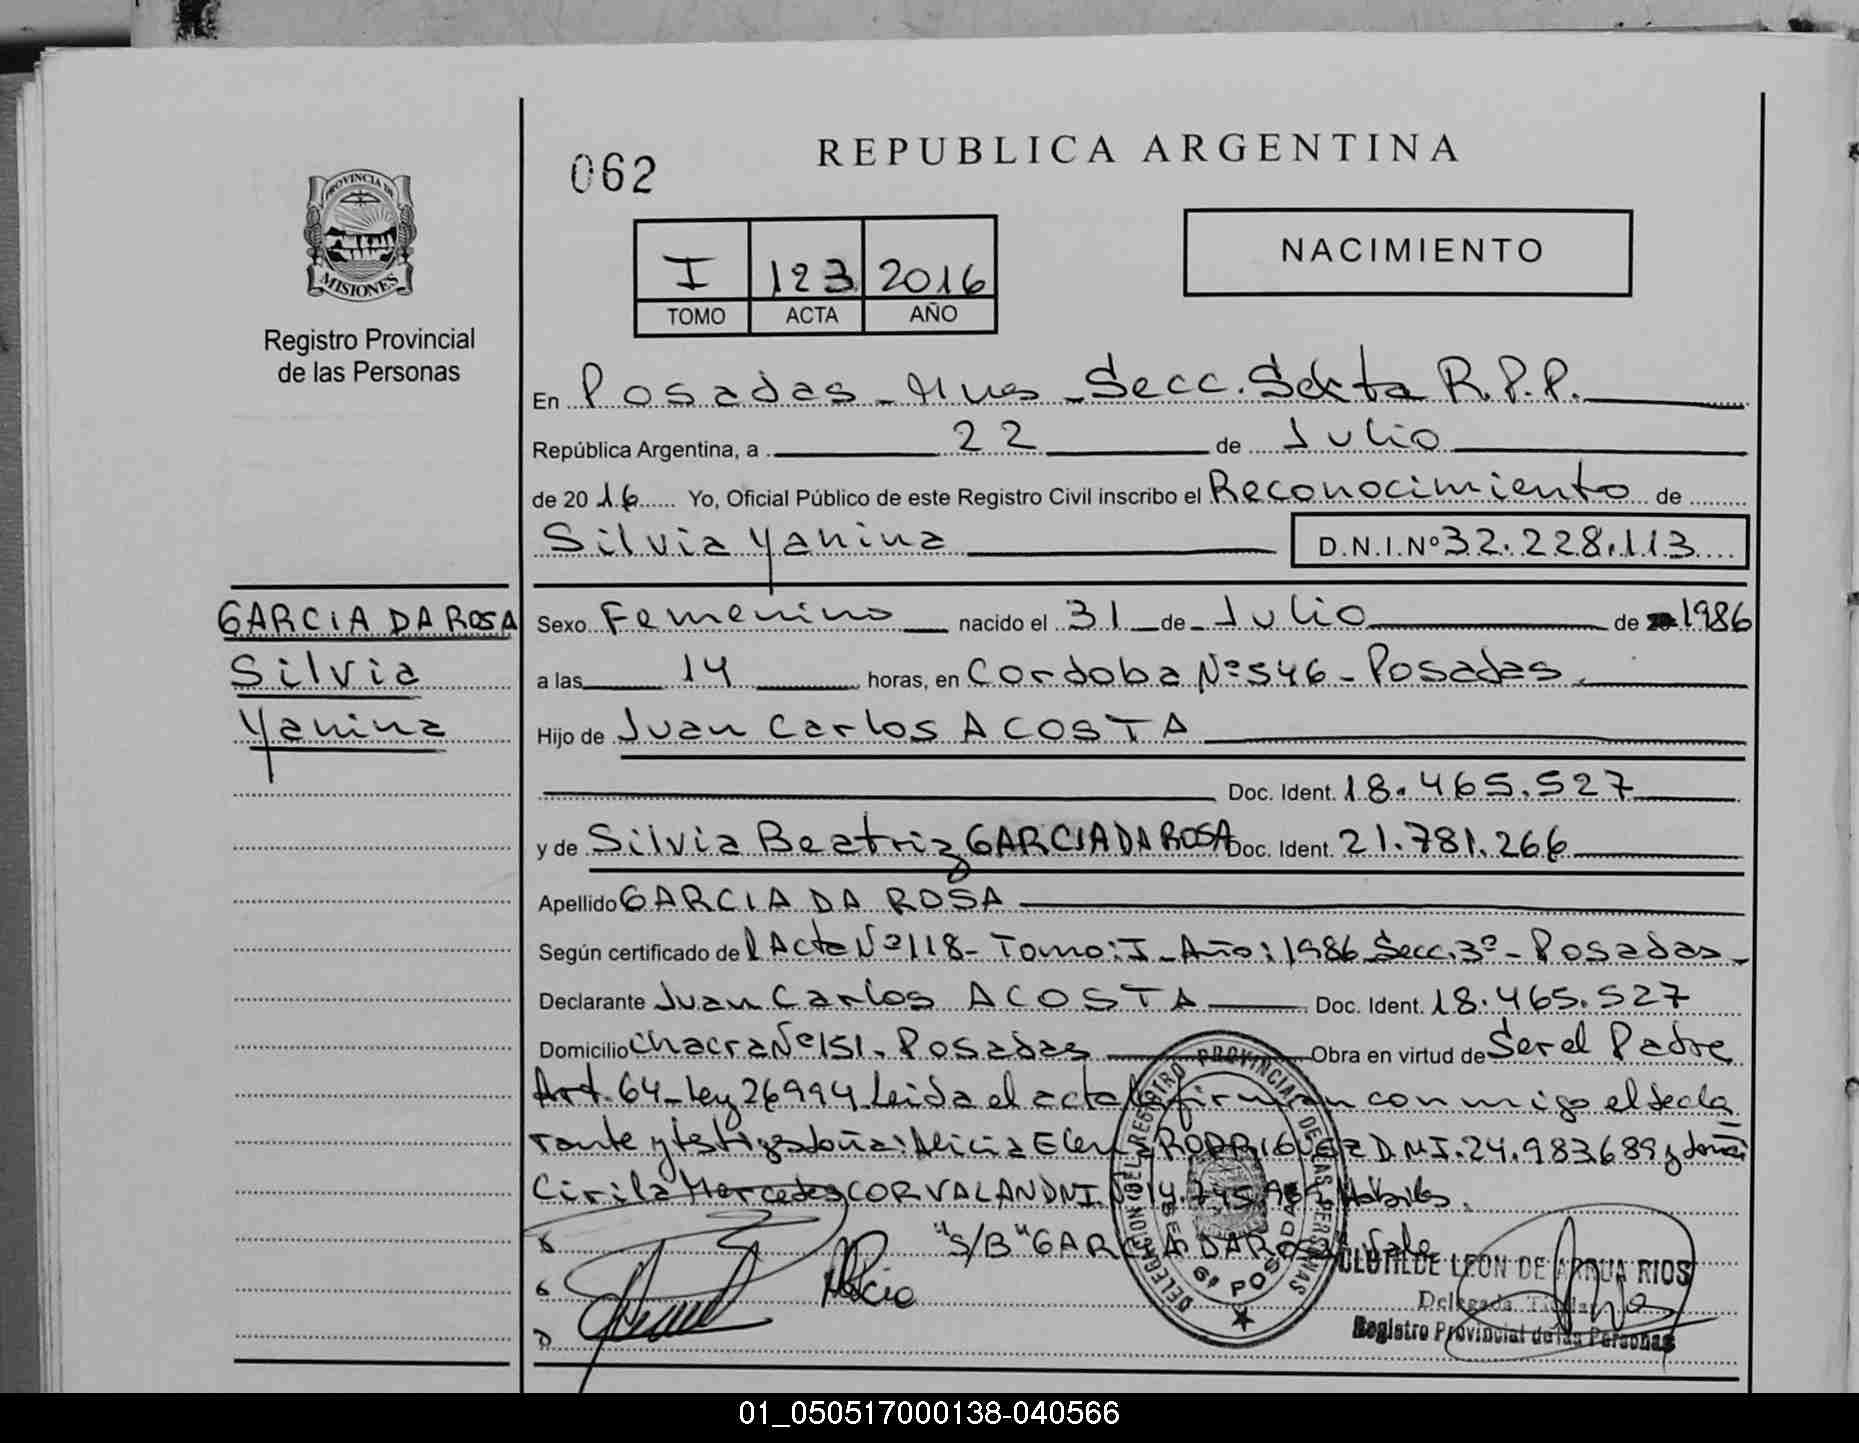 062
REPUBLICA ARGENTINA
PROVINCIA DE
MISIONES
Registro Provincial
de las Personas
I 123 2016
TOMO ACTA AÑO
NACIMIENTO
En Posadas - Mnes - Secc. Sexta R.P.P.
República Argentina, a 22 de Julio
de 2016 Yo, Oficial Público de este Registro Civil inscribo el Reconocimiento de
Silvia Yanina D.N.I. Nº 32.228.113
GARCIA DA ROSA
Silvia
Yanina
Sexo Femenino nacido el 31 de Julio de 1986
a las 14 horas, en Cordoba Nº 546 - Posadas.
Hijo de Juan Carlos ACOSTA
Doc. Ident. 18.465.527
y de Silvia Beatriz GARCIA DA ROSA Doc. Ident. 21.781.266
Apellido GARCIA DA ROSA
Según certificado del Acta Nº 118 - Tomo: I - Año: 1986 Secc. 3º - Posadas -
Declarante Juan Carlos ACOSTA Doc. Ident. 18.465.527
Domicilio Chacra Nº 151. Posadas Obra en virtud de Ser el Padre
Art. 64 - Ley 26994 Leida el acta la firman conmigo el decla
rante y testigos doña: Alicia Elena RODRIGUEZ D.N.I. 24.983.689 y doña
Cirila Mercedes CORVALAN DNI Nº 14.745. Habiles.
"S/B" GARCIA DA ROSA Vale
Alicia
DELEGACION DEL REGISTRO PROVINCIAL DE LAS PERSONAS
SEC 6ª POSADAS
CLOTILDE LEON DE ARRUA RIOS
Delegada Titular
Registro Provincial de las Personas
01_050517000138-040566